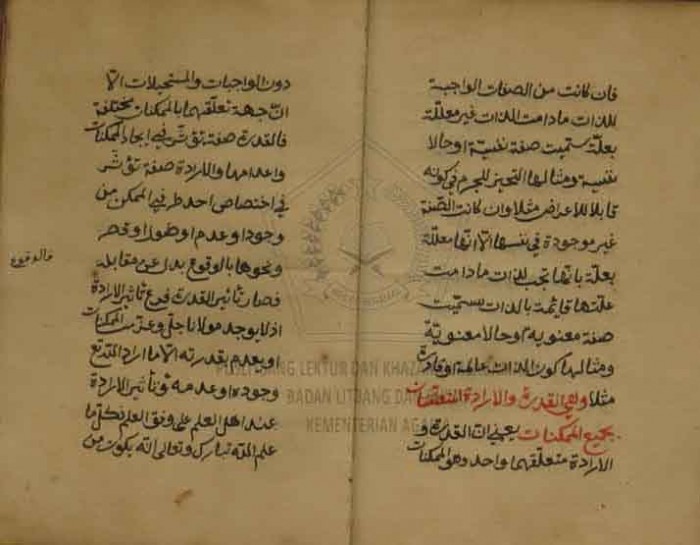 فان كانت من الصفات الواجبة
للذات ما دامت الذات غير معللة
بعلة سميت صفة نفسية او حالا
نفسية ومثالها التحيز للجرم في كونه
قابلا للاعراض مثلا وان كانت الصفة
غير موجودة في نفسها الا انها معللة
بعلة بانها تجب للذات ما دامت
علتها قائمة بالذات سميت
صفة معنوية او حالا معنوية
ومثالها كون الذات عالمة وقادرة
مثلا وهي القدرة والارادة المتعلقتان
بجميع الممكنات يعني ان القدرة و
الارادة متعلقهما واحد وهو الممكنات
دون الواجبات والمستحيلات الا
ان جهة تعلقهما بالممكنات مختلفة
فالقدرة صفة تؤثر في ايجاد الممكنات
واعدامها والارادة صفة تؤثر
في اختصاص احد طرفي الممكن من
وجود او عدم او طول او قصر
ونحوها بالوقوع بدلا عن مقابله
فالوقوع
فصار تأثير القدرة فرع تأثير الارادة
اذ لا يوجد مولانا جل وعز من الممكنات
او يعدم بقدرته الا ما اراد الله تع
وجوده او عدمه وتأثير الارادة
عند اهل العلم على وفق العلم فكل ما
علم الله تبارك وتعالى انه يكون من
PUSLITBANG LEKTUR DAN KHAZANAH
BADAN LITBANG DAN
KEMENTERIAN AGAMA